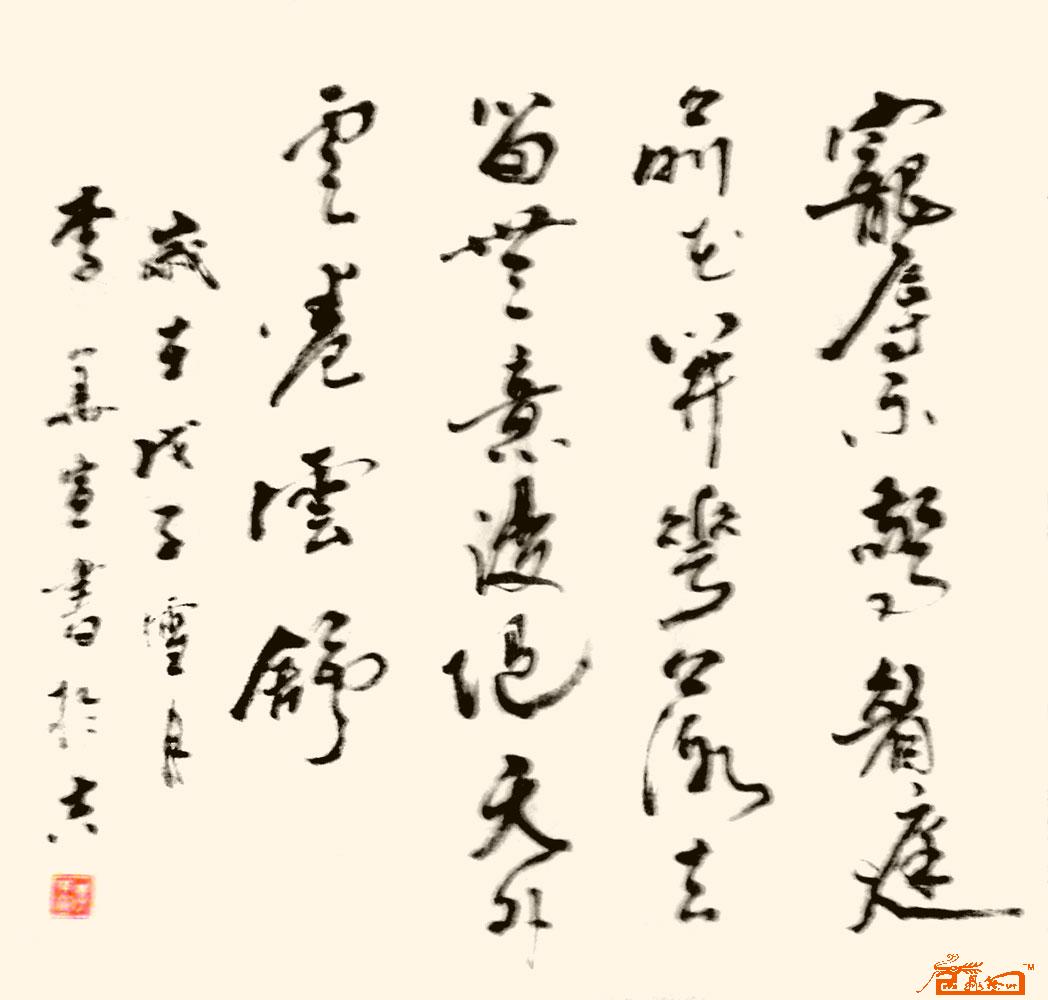 寵辱不驚看庭
前花開花落去
留無意漫隨天外
雲卷雲舒
歲在戊子雪月
李宣書於京